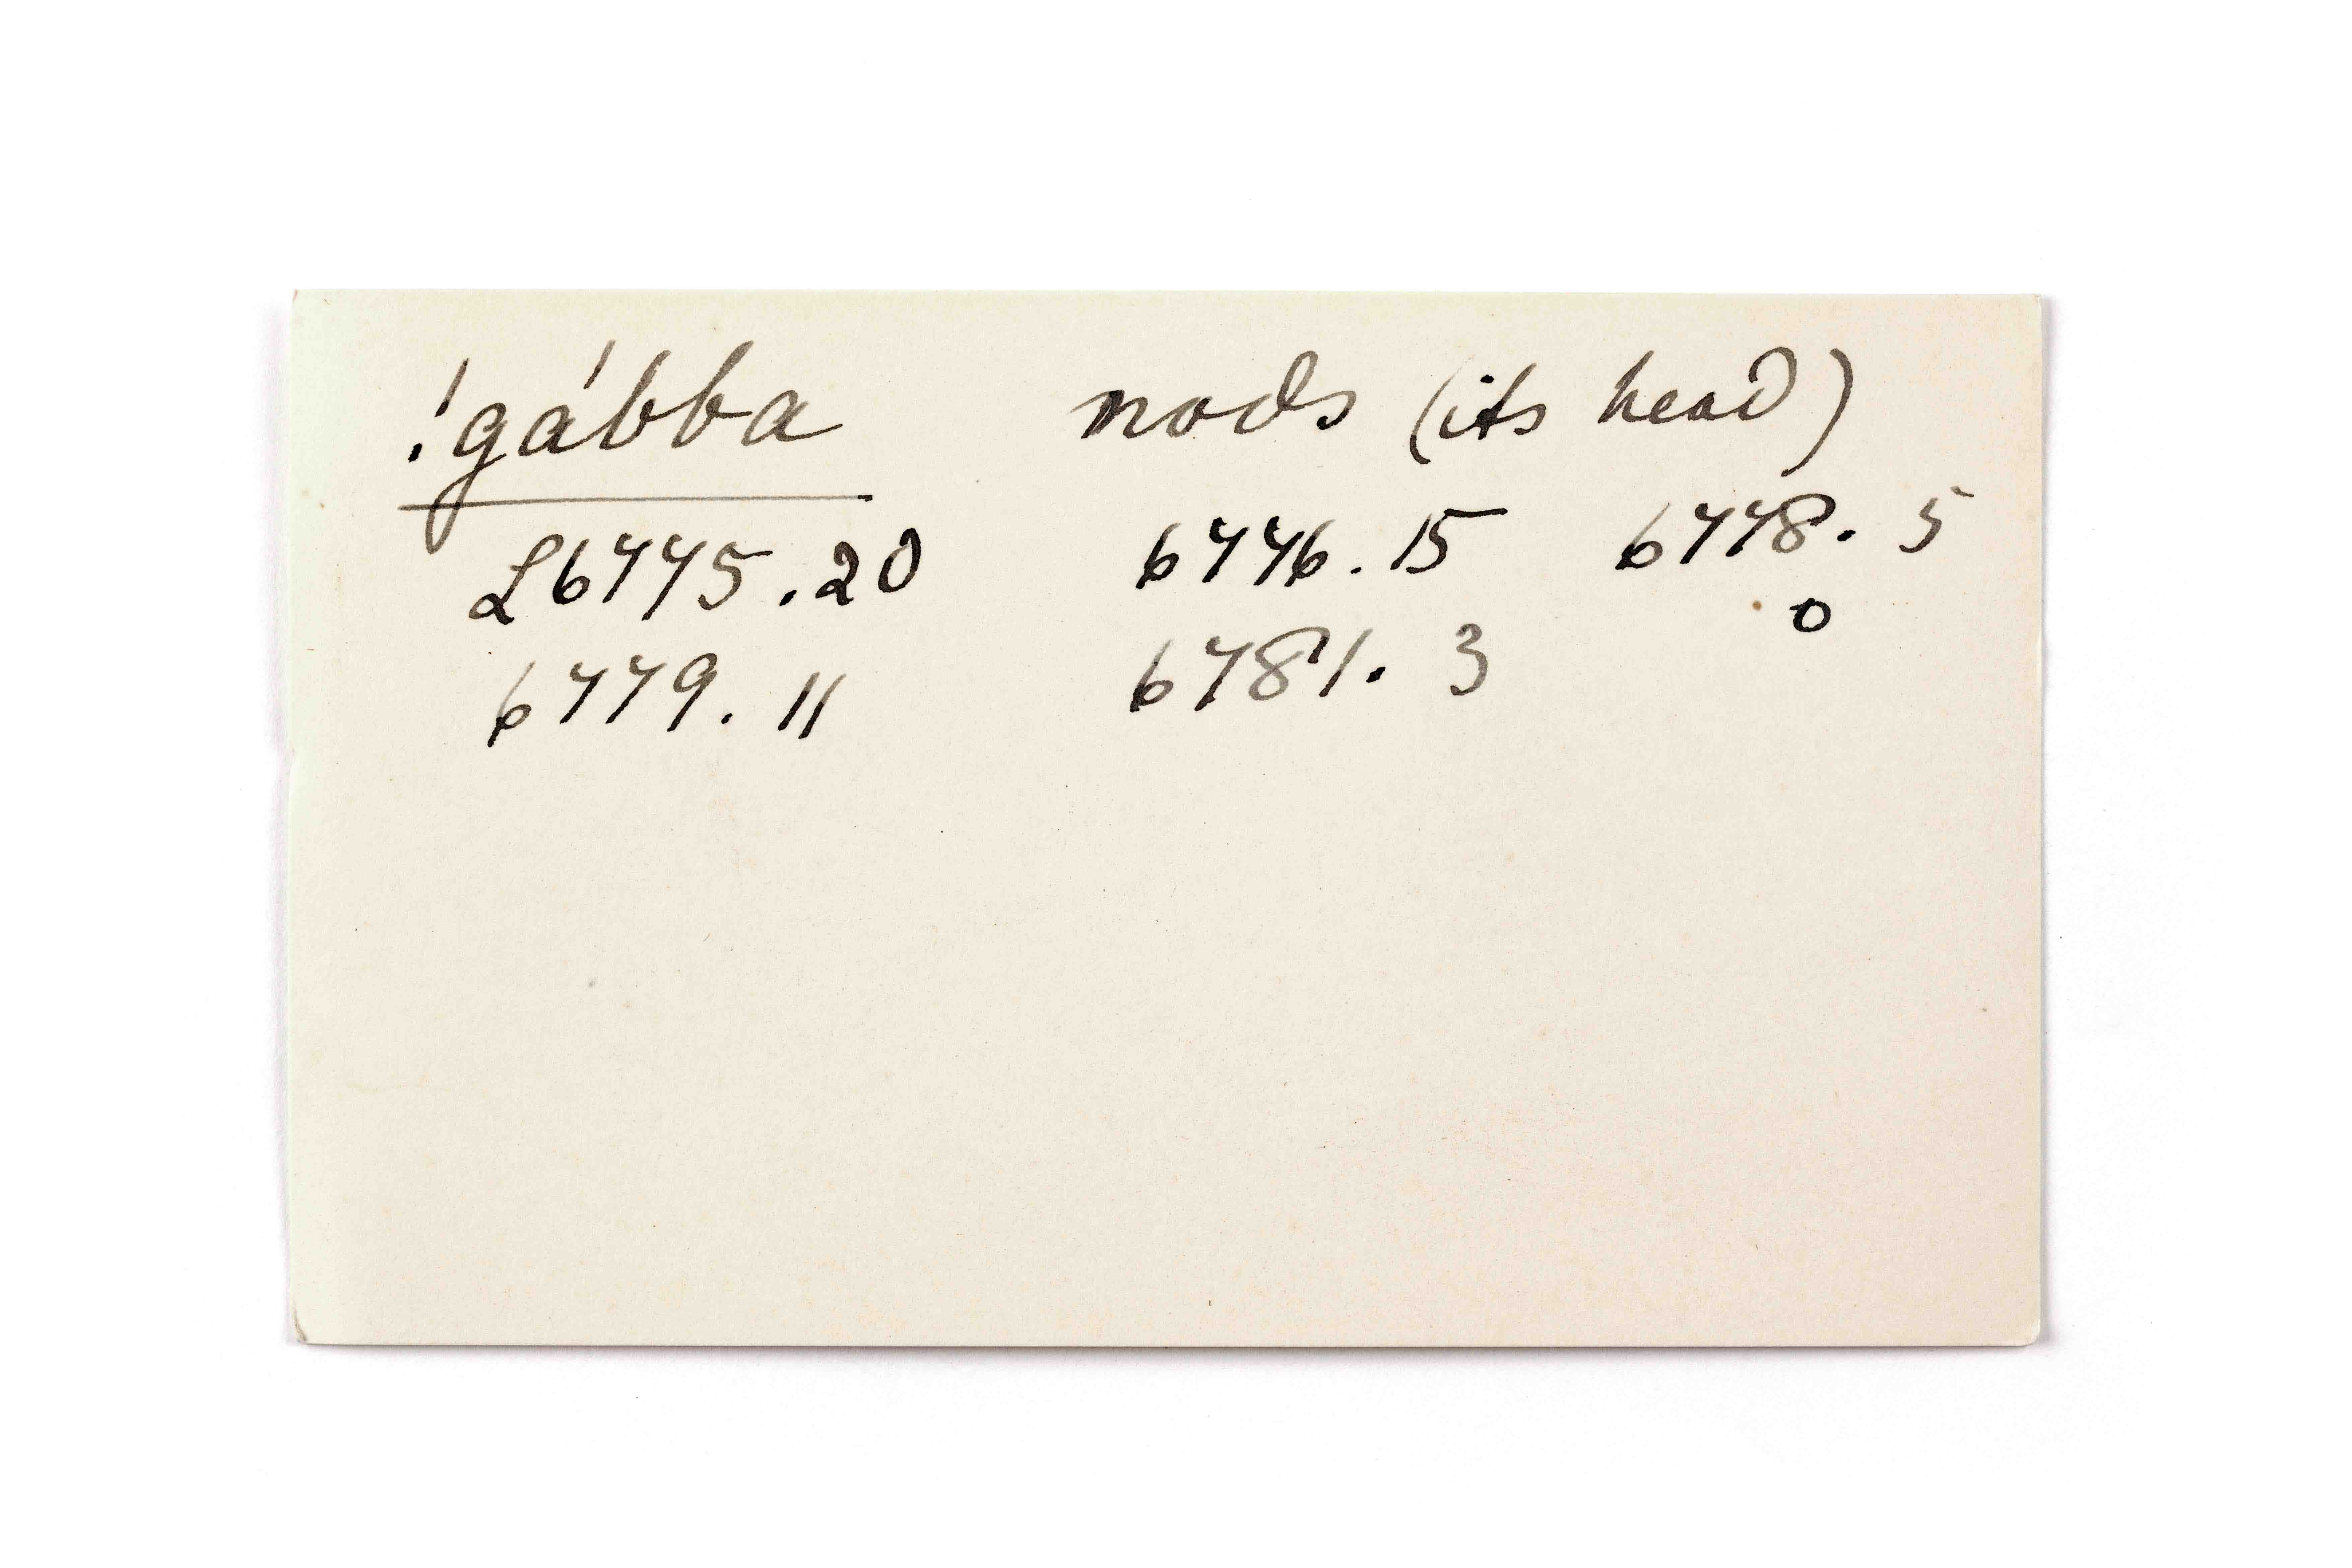 !gábba nods (its head)
L 6775.20 6776.15 6778. 5
0
6779. 11 6781. 3